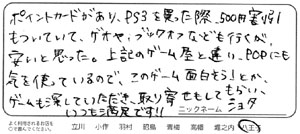 ポイントカードがあり、PS3を買った際、500円実り引
もついていて、ゲオや、ブックオフなども行くが、
安いと思った。上記のゲーム屋と違い、POPにも
気を使っているので、このゲーム面白そう!とか、
ゲームも探していただき、取り寄せもしてもらい、
いつも満足です!! ニックネーム ショタ
よく利用されるお店を○で囲んでください。 立川 小作 羽村 昭島 青梅 高幡 堀之内 八王